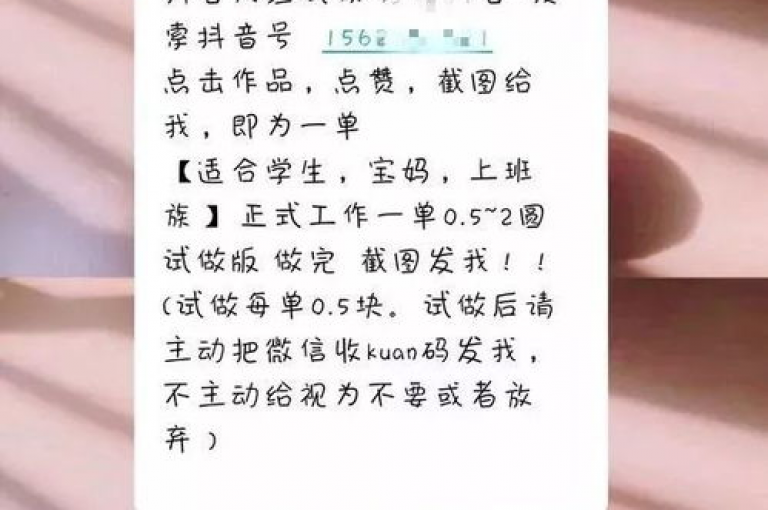 索抖音号 1562
点击作品，点赞，截图给
我，即为一单
【适合学生，宝妈，上班
族】正式工作一单0.5~2圆
试做版 做完 截图发我！！
(试做每单0.5块。试做后请
主动把微信收kuan码发我，
不主动给视为不要或者放
弃）